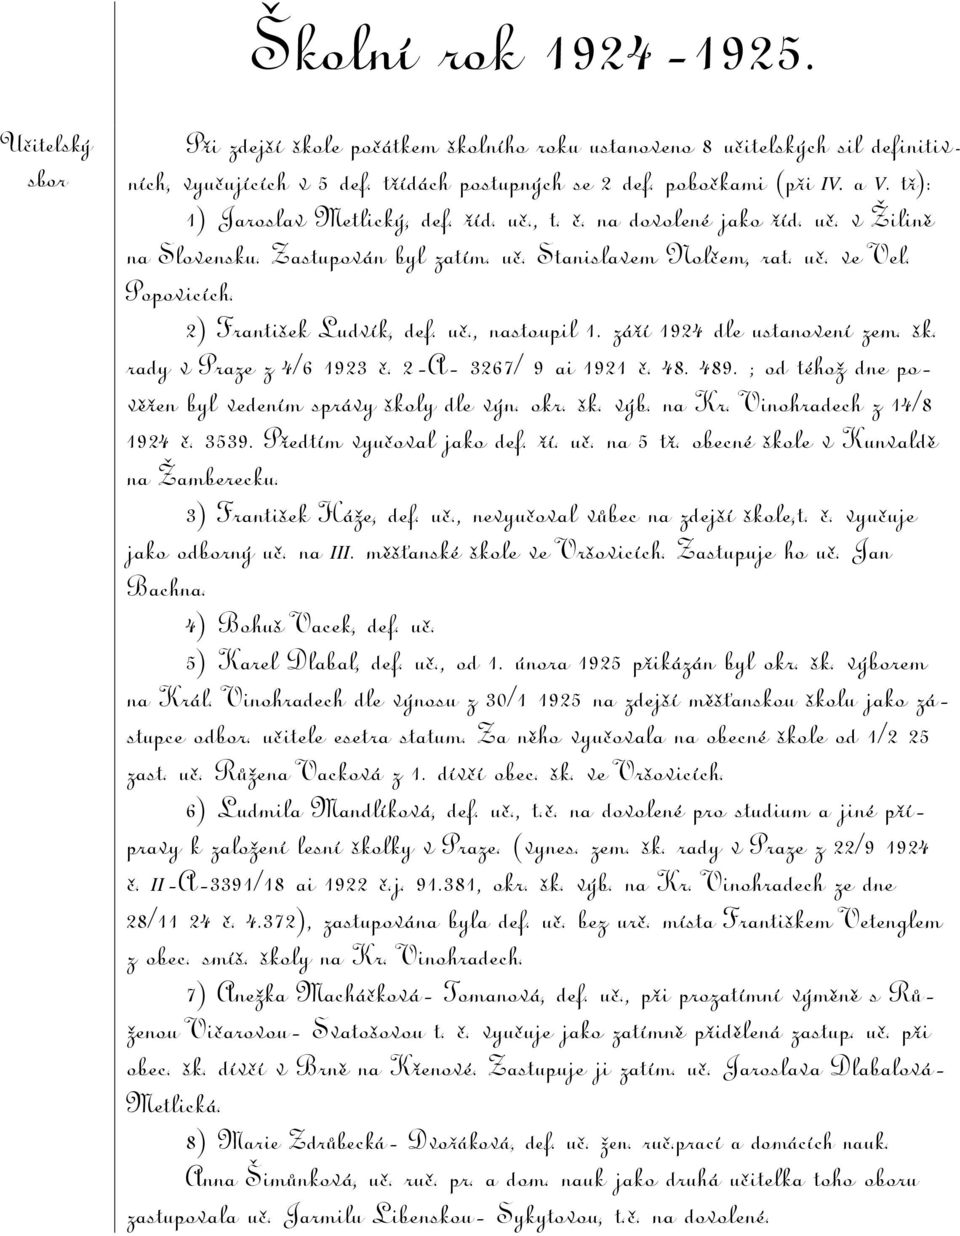 Školní rok 1924-1925.
Učitelský
sbor
Při zdejší škole počátkem školního roku ustanoveno 8 učitelských sil definitiv-
ních, vyučujících v 5 def. třídách postupných se 2 def. pobočkami (při IV. a V. tř):
1) Jaroslav Metlický, def. říd. uč., t. č. na dovolené jako říd. uč. v Žilině
na Slovensku. Zastupován byl zatím. uč. Stanislavem Nolčem, rat. uč. ve Vel.
Popovicích.
2) František Ludvík, def. uč., nastoupil 1. září 1924 dle ustanovení zem. šk.
rady v Praze z 4/6 1923 č. 2-A- 3267/ 9 ai 1921 č. 48. 489. ; od téhož dne po-
věřen byl vedením správy školy dle výn. okr. šk. výb. na Kr. Vinohradech z 14/8
1924 č. 3539. Předtím vyučoval jako def. ří. uč. na 5 tř. obecné škole v Kunvaldě
na Žamberecku.
3) František Háže, def. uč., nevyučoval vůbec na zdejší škole,t. č. vyučuje
jako odborný uč. na III. měšťanské škole ve Vršovicích. Zastupuje ho uč. Jan
Bachna.
4) Bohuš Vacek, def. uč.
5) Karel Dlabal, def. uč., od 1. února 1925 přikázán byl okr. šk. výborem
na Král. Vinohradech dle výnosu z 30/1 1925 na zdejší měšťanskou školu jako zá-
stupce odbor. učitele esetra statum. Za něho vyučovala na obecné škole od 1/2 25
zast. uč. Růžena Vacková z 1. dívčí obec. šk. ve Vršovicích.
6) Ludmila Mandlíková, def. uč., t.č. na dovolené pro studium a jiné pří-
pravy k založení lesní školky v Praze. (vynes. zem. šk. rady v Praze z 22/9 1924
č. II-A-3391/18 ai 1922 č.j. 91.381, okr. šk. výb. na Kr. Vinohradech ze dne
28/11 24 č. 4.372), zastupována byla def. uč. bez urč. místa Františkem Vetenglem
z obec. smíš. školy na Kr. Vinohradech.
7) Anežka Macháčková- Tomanová, def. uč., při prozatímní výměně s Rů-
ženou Vičarovou- Svatošovou t. č. vyučuje jako zatímně přidělená zastup. uč. při
obec. šk. dívčí v Brně na Křenové. Zastupuje ji zatím. uč. Jaroslava Dlabalová-
Metlická.
8) Marie Zdrůbecká- Dvořáková, def. uč. žen. ruč.prací a domácích nauk.
Anna Šimůnková, uč. ruč. pr. a dom. nauk jako druhá učitelka toho oboru
zastupovala uč. Jarmilu Libenskou- Sykytovou, t.č. na dovolené.